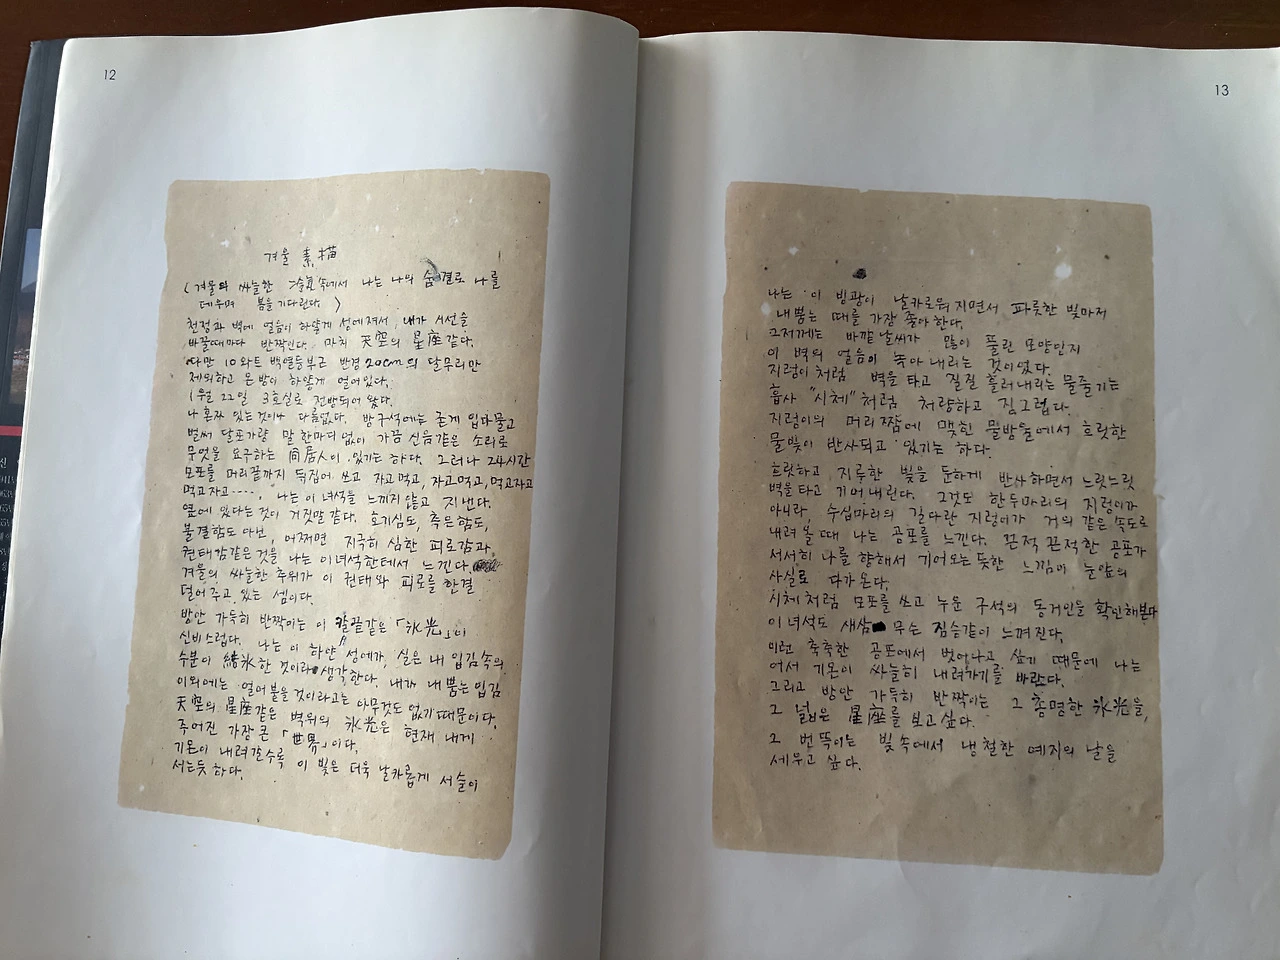 12
겨울 素描
(겨울의 싸늘한 冷氣속에서 나는 나의 숨결로 나를
데우며 봄을 기다린다.)
천정과 벽에 얼음이 하얗게 성에져서, 내가 시선을
바꿀때마다 반짝인다. 마치 天空의 星座같다.
다만 10와트 백열등부근 반경 20cm의 달무리만
제외하고 온방이 하얗게 얼어있다.
1월 22일 3호실로 전방되어 왔다.
나 혼자 있는것이나 다름없다. 방구석에는 굳게 입다물고
벌써 달포가량 말 한마디 없이 가끔 신음같은 소리로
무엇을 요구하는 同居人이 있기는 하다. 그러나 24시간
모포를 머리끝까지 뒤집어 쓰고 자고먹고, 자고먹고, 먹고자고
먹고자고……, 나는 이 녀석을 느끼지 않고 지낸다.
옆에 있다는 것이 거짓말 같다. 호기심도, 측은함도,
불결함도 아닌, 어쩌면 지극히 심한 피로감과
권태감같은 것을 나는 이녀석한테서 느낀다.
겨울의 싸늘한 추위가 이 권태와 피로를 한결
덜어주고 있는 셈이다.
방안 가득히 반짝이는 이 칼끝같은 「氷光」이
신비스럽다. 나는 이 하얀 성에가, 실은 내 입김 속의
수분이 結氷한 것이라 생각한다. 내가 내뿜는 입김
이외에는 얼어붙을 것이라고는 아무것도 없기 때문이다.
天空의 星座같은 벽위의 氷光은 현재 내게
주어진 가장 큰 「世界」이다.
기온이 내려갈수록 이 빛은 더욱 날카롭게 서슬이
서는듯 하다.
13
나는 이 빙광이 날카로워지면서 파릇한 빛마저
내뿜는 때를 가장 좋아한다.
그저께는 바깥 날씨가 많이 풀린 모양인지
이 벽의 얼음이 녹아 내리는 것이었다.
지렁이처럼 벽을 타고 질질 흘러내리는 물줄기는
흡사 "시체"처럼 처량하고 징그럽다.
지렁이의 머리짬에 맺힌 물방울에서 흐릿한
물빛이 반사되고 있기는 하다.
흐릿하고 지루한 빛을 둔하게 반사하면서 느릿느릿
벽을 타고 기어 내린다. 그것도 한두마리의 지렁이가
아니라, 수십마리의 길다란 지렁이가 거의 같은 속도로
내려올때 나는 공포를 느낀다. 끈적끈적한 공포가
서서히 나를 향해서 기어오는듯한 느낌이 눈앞의
사실로 다가온다.
시체처럼 모포를 쓰고 누운 구석의 동거인을 확인해본다
이 녀석도 새삼 무슨 짐승같이 느껴진다.
이런 축축한 공포에서 벗어나고 싶기 때문에 나는
어서 기온이 싸늘히 내려가기를 바랐다.
그리고 방안 가득히 반짝이는 그 총명한 氷光을,
그 넓은 星座를 보고싶다.
그 번뜩이는 빛속에서 냉철한 예지의 날을
세우고 싶다.